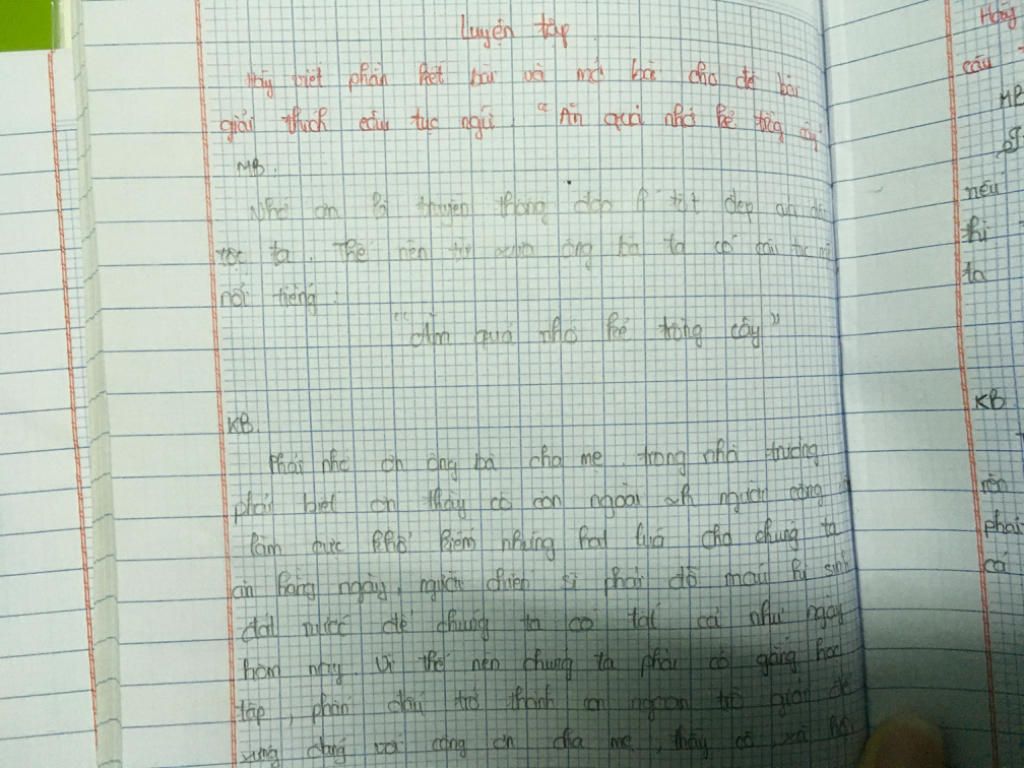 Luyện tập
Hãy viết phần kết bài và mở bài cho đề bài
giải thích câu tục ngữ. "Ăn quả nhớ kẻ trồng cây"
MB.
Nhớ ơn là truyền thống đạo lí tốt đẹp của dân
tộc ta. Thế nên từ xưa ông bà ta có câu tục ngữ
nổi tiếng:
"Ăn quả nhớ kẻ trồng cây"
KB.
Phải nhớ ơn ông bà cha mẹ. trong nhà trường
phải biết ơn thầy cô còn ngoài xh người công
làm cực khổ kiếm những hạt lúa cho chúng ta
ăn hằng ngày, người chiến sĩ phải đổ máu hi sinh
đất nước để chúng ta có tất cả như ngày
hôm nay. Vì thế nên chúng ta phải cố gắng học
tập, phấn đấu trở thành con ngoan trò giỏi để
xứng đáng với công ơn cha mẹ, thầy cô, xã hội
Hãy
câu
MB
nếu
thì
ta
KB
rèn
phải
có